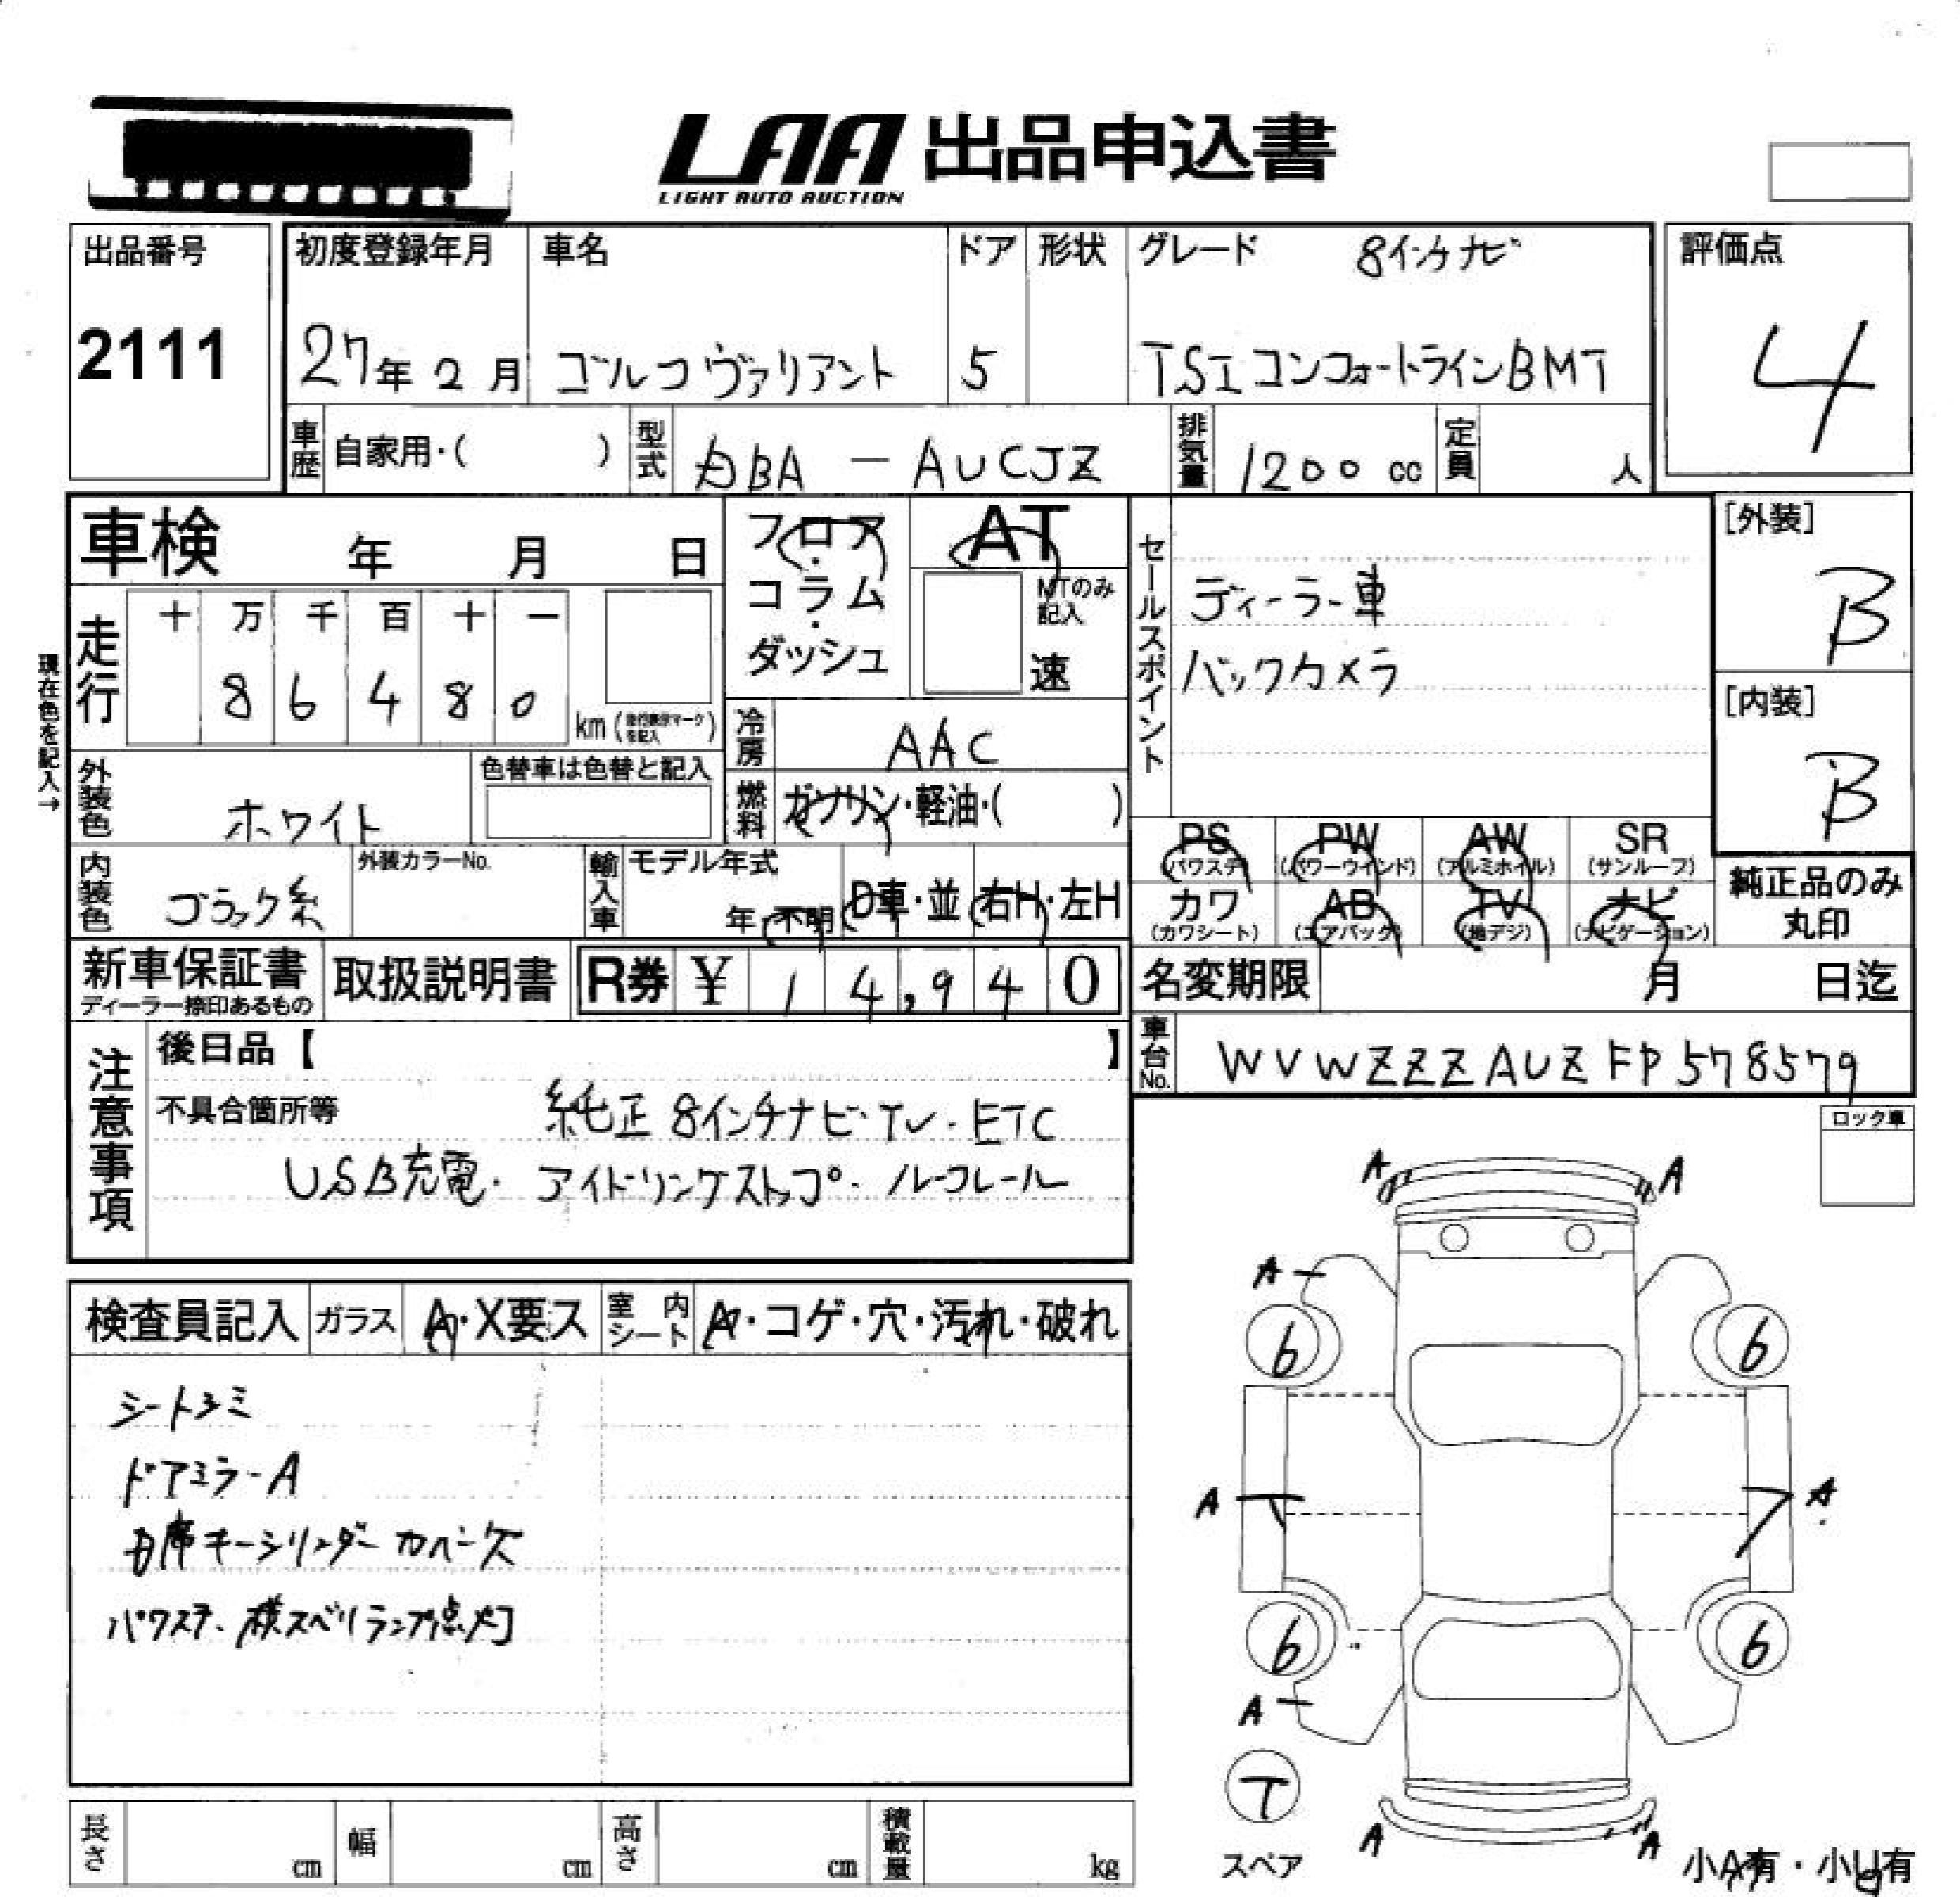 LAA 出品申込書
LIGHT AUTO AUCTION
出品番号
2111
初度登録年月
27年 2月
車名
ゴルフ ヴァリアント
ドア
5
形状
グレード 8インチナビ
TSI コンフォートラインBMT
評価点
4
車歴 自家用・( )
型式 DBA - AUCJZ
排気量 1200 cc
定員 人
車検 年 月 日
フロア・コラム・ダッシュ
AT
MTのみ記入
速
セールスポイント
ディーラー車
バックカメラ
[外装]
B
[内装]
B
現在色を記入→
走行
十 万 千 百 十 一
8 6 4 8 0
km (走行表示マークを記入)
冷房 AAC
外装色 ホワイト
色替車は色替と記入
燃料 ガソリン・軽油・( )
内装色 ブラック系
外装カラーNo.
輸入車
モデル年式
年・不明
D車・並
右H・左H
PS (パワステ)
PW (パワーウインド)
AW (アルミホイル)
SR (サンルーフ)
カワ (カワシート)
AB (エアバック)
TV (地デジ)
ナビ (ナビゲーション)
純正品のみ丸印
新車保証書
ディーラー捺印あるもの
取扱説明書
R券 ¥ 14,940
名変期限 月 日迄
車台No. WVWZZZAUZFP578579
注意事項
後日品【 】
不具合箇所等 純正 8インチナビ・TV・ETC
USB充電・アイドリングストップ・ルーフレール
ロック車
検査員記入
ガラス A・X要ス
室内シート A・コゲ・穴・汚れ・破れ
シートシミ
ドアミラーA
D席キーシリンダーカバー欠
パワステ、横スベリランプ点灯
A A
A
6 6
A A
6 6
A
T
スペア
A A
小A有・小U有
長さ cm
幅 cm
高さ cm
積載量 kg